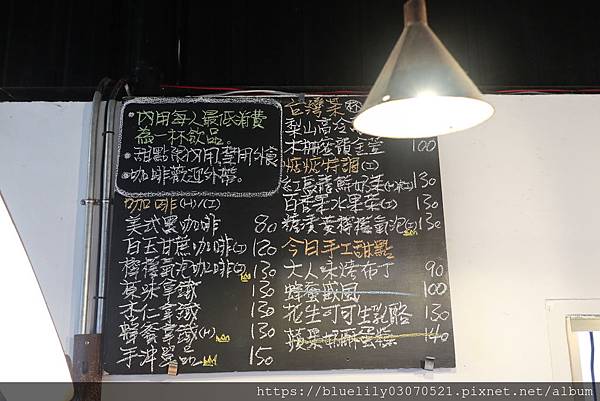 內用每人最低消費
為一杯飲品。
甜點限內用,禁用外食
咖啡歡迎外帶。
咖啡(H/I)
美式黑咖啡 80
百五甘蔗咖啡(I) 120
檸檬氣泡咖啡(I) 130
拿鐵 130
杏仁拿鐵 130
蜂蜜拿鐵(H) 130
手沖單品 150
台灣茶
梨山高
木柵 100
特調(I)
130
百香果水果茶(I) 130
檸檬氣泡(I) 130
今日手工甜點
大人味烤布丁 90
蜂蜜戚風 100
花生可可生乳酪 130
蘋果奶酥蛋糕 140
https://bluelily03070521.pixnet.net/album